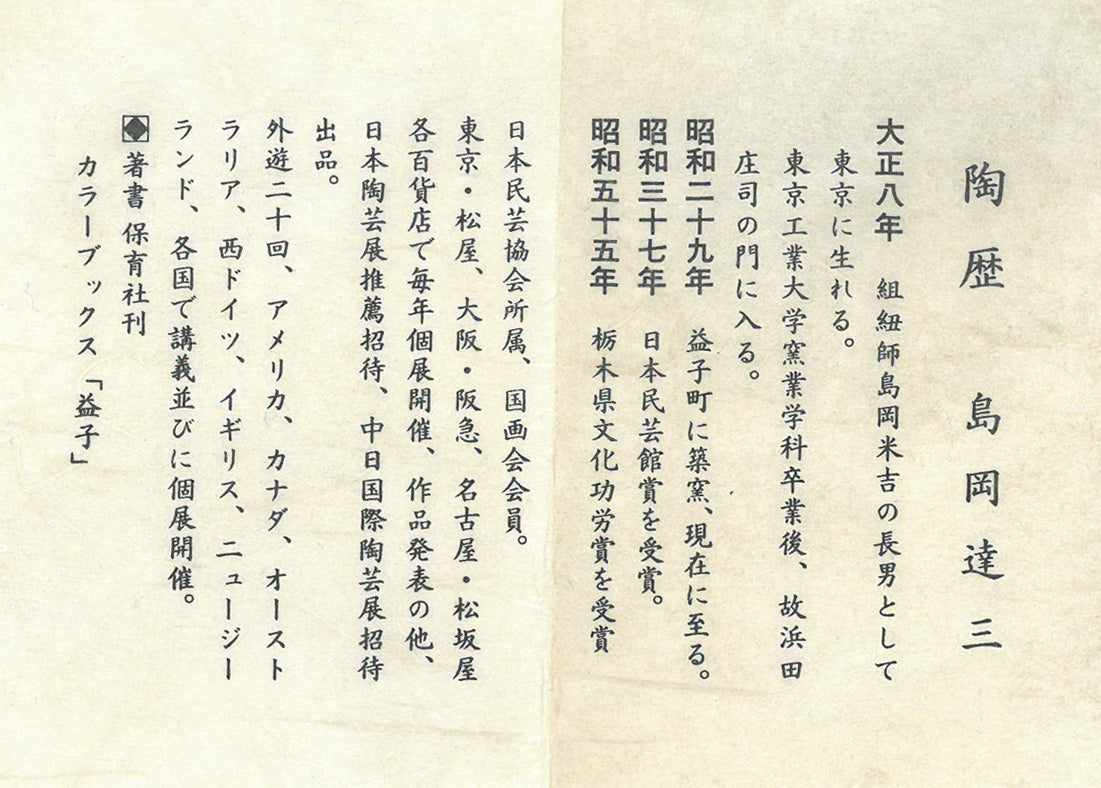 陶歴 島岡達三
大正八年 組紐師島岡米吉の長男として
東京に生れる。
東京工業大学窯業学科卒業後、故浜田
庄司の門に入る。
昭和二十九年 益子町に築窯、現在に至る。
昭和三十七年 日本民芸館賞を受賞。
昭和五十五年 栃木県文化功労賞を受賞
日本民芸協会所属、国画会会員。
東京・松屋、大阪・阪急、名古屋・松坂屋
各百貨店で毎年個展開催、作品発表の他、
日本陶芸展推薦招待、中日国際陶芸展招待
出品。
外遊二十回、アメリカ、カナダ、オースト
ラリア、西ドイツ、イギリス、ニュージー
ランド、各国で講義並びに個展開催。
◈著書 保育社刊
カラーブックス「益子」